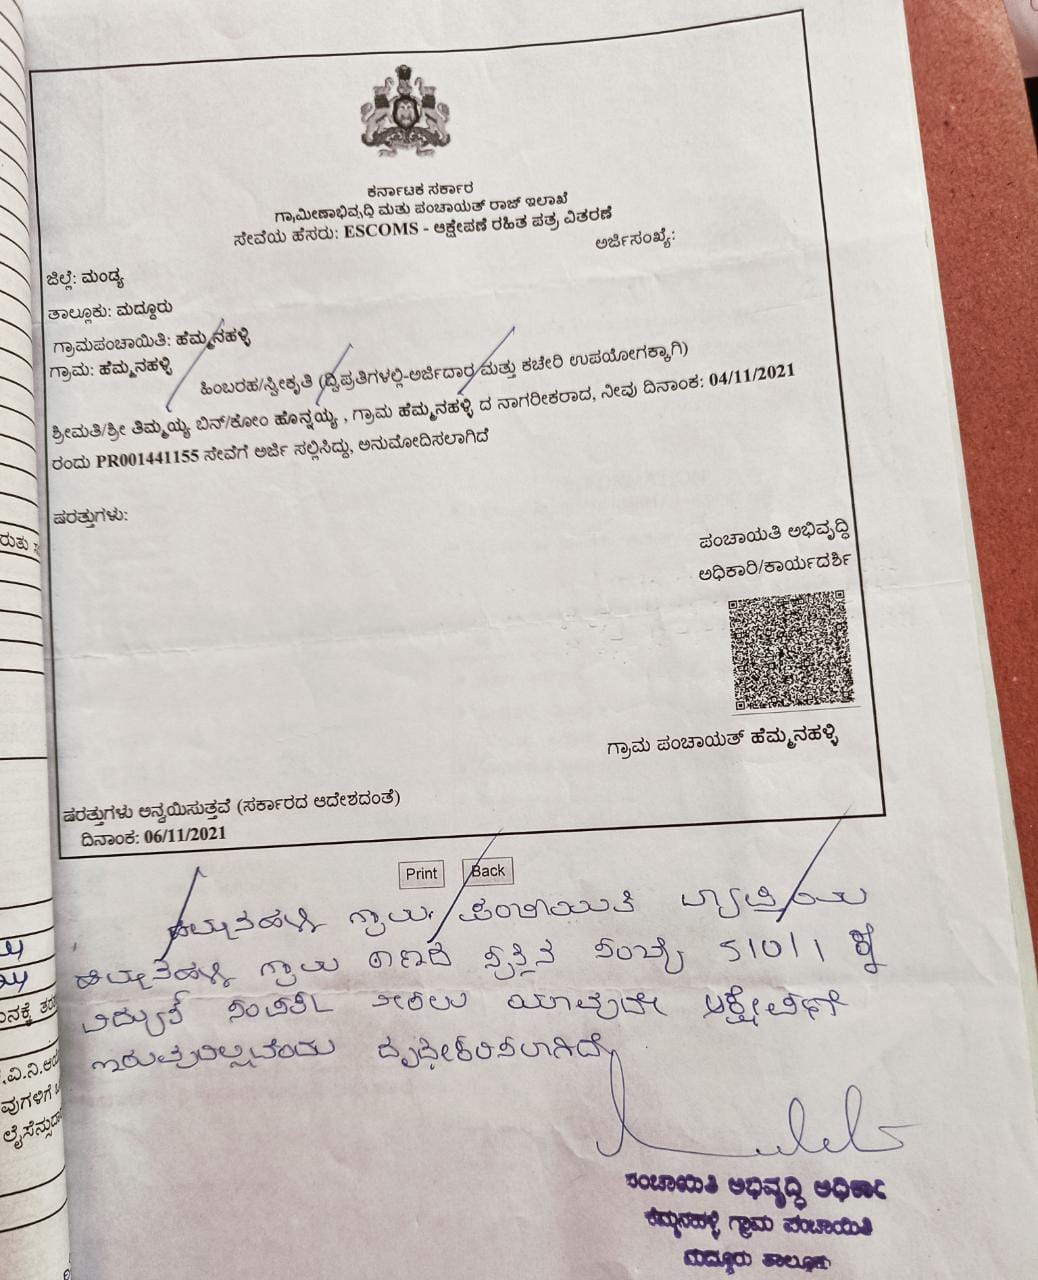 ಕರ್ನಾಟಕ ಸರ್ಕಾರ
ಗ್ರಾಮೀಣಾಭಿವೃದ್ಧಿ ಮತ್ತು ಪಂಚಾಯತ್ ರಾಜ್ ಇಲಾಖೆ
ಸೇವೆಯ ಹೆಸರು: ESCOMS - ಆಕ್ಷೇಪಣೆ ರಹಿತ ಪತ್ರ ವಿತರಣೆ
ಅರ್ಜಿಸಂಖ್ಯೆ:
ಜಿಲ್ಲೆ: ಮಂಡ್ಯ
ತಾಲ್ಲೂಕು: ಮದ್ದೂರು
ಗ್ರಾಮಪಂಚಾಯಿತಿ: ಹೆಮ್ಮನಹಳ್ಳಿ
ಗ್ರಾಮ: ಹೆಮ್ಮನಹಳ್ಳಿ
ಹಿಂಬರಹ/ಸ್ವೀಕೃತಿ (ದ್ವಿಪ್ರತಿಗಳಲ್ಲಿ-ಅರ್ಜಿದಾರ ಮತ್ತು ಕಚೇರಿ ಉಪಯೋಗಕ್ಕಾಗಿ)
ಶ್ರೀಮತಿ/ಶ್ರೀ ತಿಮ್ಮಯ್ಯ ಬಿನ್/ಕೋಂ ಹೊನ್ನಯ್ಯ , ಗ್ರಾಮ ಹೆಮ್ಮನಹಳ್ಳಿ ದ ನಾಗರೀಕರಾದ, ನೀವು ದಿನಾಂಕ: 04/11/2021
ರಂದು PR001441155 ಸೇವೆಗೆ ಅರ್ಜಿ ಸಲ್ಲಿಸಿದ್ದು, ಅನುಮೋದಿಸಲಾಗಿದೆ
ಷರತ್ತುಗಳು:
ಪಂಚಾಯತಿ ಅಭಿವೃದ್ಧಿ
ಅಧಿಕಾರಿ/ಕಾರ್ಯದರ್ಶಿ
ಗ್ರಾಮ ಪಂಚಾಯತ್ ಹೆಮ್ಮನಹಳ್ಳಿ
ಷರತ್ತುಗಳು ಅನ್ವಯಿಸುತ್ತವೆ (ಸರ್ಕಾರದ ಆದೇಶದಂತೆ)
ದಿನಾಂಕ: 06/11/2021
Print Back
ಹೆಮ್ಮನಹಳ್ಳಿ ಗ್ರಾಮ ಪಂಚಾಯಿತಿ ವ್ಯಾಪ್ತಿಯ
ಹೆಮ್ಮನಹಳ್ಳಿ ಗ್ರಾಮ ಠಾಣದ ಸ್ವತ್ತಿನ ಸಂಖ್ಯೆ 510/1 ಕ್ಕೆ
ವಿದ್ಯುತ್ ಸಂಪರ್ಕ ನೀಡಲು ಯಾವುದೇ ಆಕ್ಷೇಪಣೆ
ಇರುವುದಿಲ್ಲವೆಂದು ದೃಢೀಕರಿಸಲಾಗಿದೆ
ಪಂಚಾಯಿತಿ ಅಭಿವೃದ್ಧಿ ಅಧಿಕಾರಿ
ಹೆಮ್ಮನಹಳ್ಳಿ ಗ್ರಾಮ ಪಂಚಾಯಿತಿ
ಮದ್ದೂರು ತಾಲ್ಲೂಕು